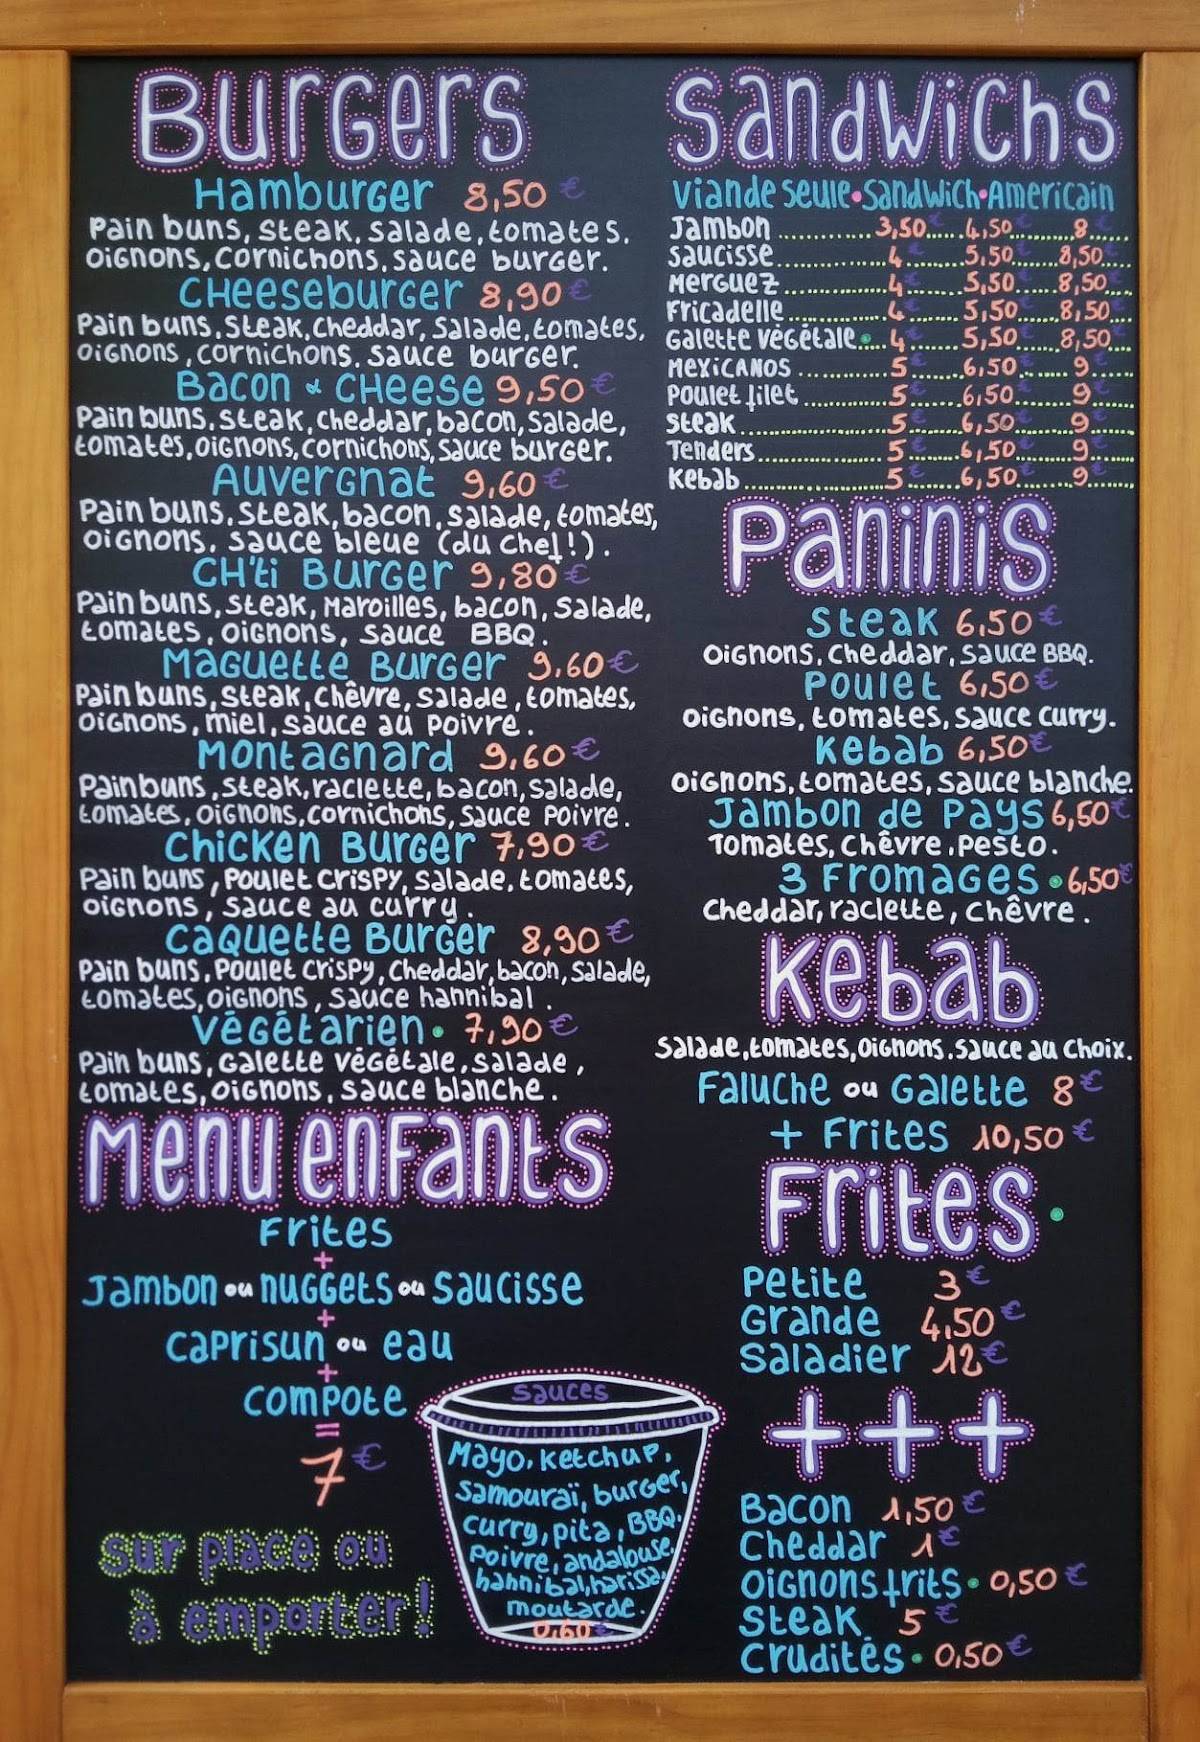 Burgers
Hamburger 8,50 €
Pain buns, steak, salade, tomates,
oignons, cornichons, sauce burger.
Cheeseburger 8,90 €
Pain buns, steak, cheddar, salade, tomates,
oignons, cornichons, sauce burger.
Bacon & Cheese 9,50 €
Pain buns, steak, cheddar, bacon, salade,
tomates, oignons, cornichons, sauce burger.
Auvergnat 9,60 €
Pain buns, steak, bacon, salade, tomates,
oignons, sauce bleue (du chef!).
CH'ti Burger 9,80 €
Pain buns, steak, Maroilles, bacon, salade,
tomates, oignons, sauce BBQ.
Maguette Burger 9,60 €
Pain buns, steak, chêvre, salade, tomates,
oignons, miel, sauce au poivre.
Montagnard 9,60 €
Pain buns, steak, raclette, bacon, salade,
tomates, oignons, cornichons, sauce poivre.
Chicken Burger 7,90 €
Pain buns, poulet crispy, salade, tomates,
oignons, sauce au curry.
Caquette Burger 8,90 €
Pain buns, poulet crispy, cheddar, bacon, salade,
tomates, oignons, sauce hannibal.
Végétarien • 7,90 €
Pain buns, galette végétale, salade,
tomates, oignons, sauce blanche.
Menu enfants
Frites
+
Jambon ou nuggets ou saucisse
+
Caprisun ou eau
+
Compote
=
7 €
sur place ou
à emporter!
Sauces
Mayo, ketchup,
samouraï, burger,
curry, pita, BBQ,
poivre, andalouse,
hannibal, harissa,
moutarde.
0,60 €
Sandwichs
Viande seule • Sandwich • Americain
Jambon ............ 3,50 € ..... 4,50 € ..... 8 €
Saucisse ............ 4 € ..... 5,50 € ..... 8,50 €
Merguez ............ 4 € ..... 5,50 € ..... 8,50 €
Fricadelle ............ 4 € ..... 5,50 € ..... 8,50 €
Galette végétale • .... 4 € ..... 5,50 € ..... 8,50 €
Mexicanos ............ 5 € ..... 6,50 € ..... 9 €
Poulet filet ............ 5 € ..... 6,50 € ..... 9 €
Steak ............ 5 € ..... 6,50 € ..... 9 €
Tenders ............ 5 € ..... 6,50 € ..... 9 €
Kebab ............ 5 € ..... 6,50 € ..... 9 €
Paninis
Steak 6,50 €
oignons, cheddar, sauce BBQ.
Poulet 6,50 €
oignons, tomates, sauce curry.
Kebab 6,50 €
oignons, tomates, sauce blanche.
Jambon de Pays 6,50 €
Tomates, chêvre, pesto.
3 Fromages • 6,50 €
Cheddar, raclette, chêvre.
Kebab
Salade, tomates, oignons, sauce au choix.
Faluche ou Galette 8 €
+ Frites 10,50 €
Frites •
Petite 3 €
Grande 4,50 €
Saladier 12 €
+++
Bacon 1,50 €
Cheddar 1 €
Oignons frits • 0,50 €
Steak 5 €
Crudités • 0,50 €